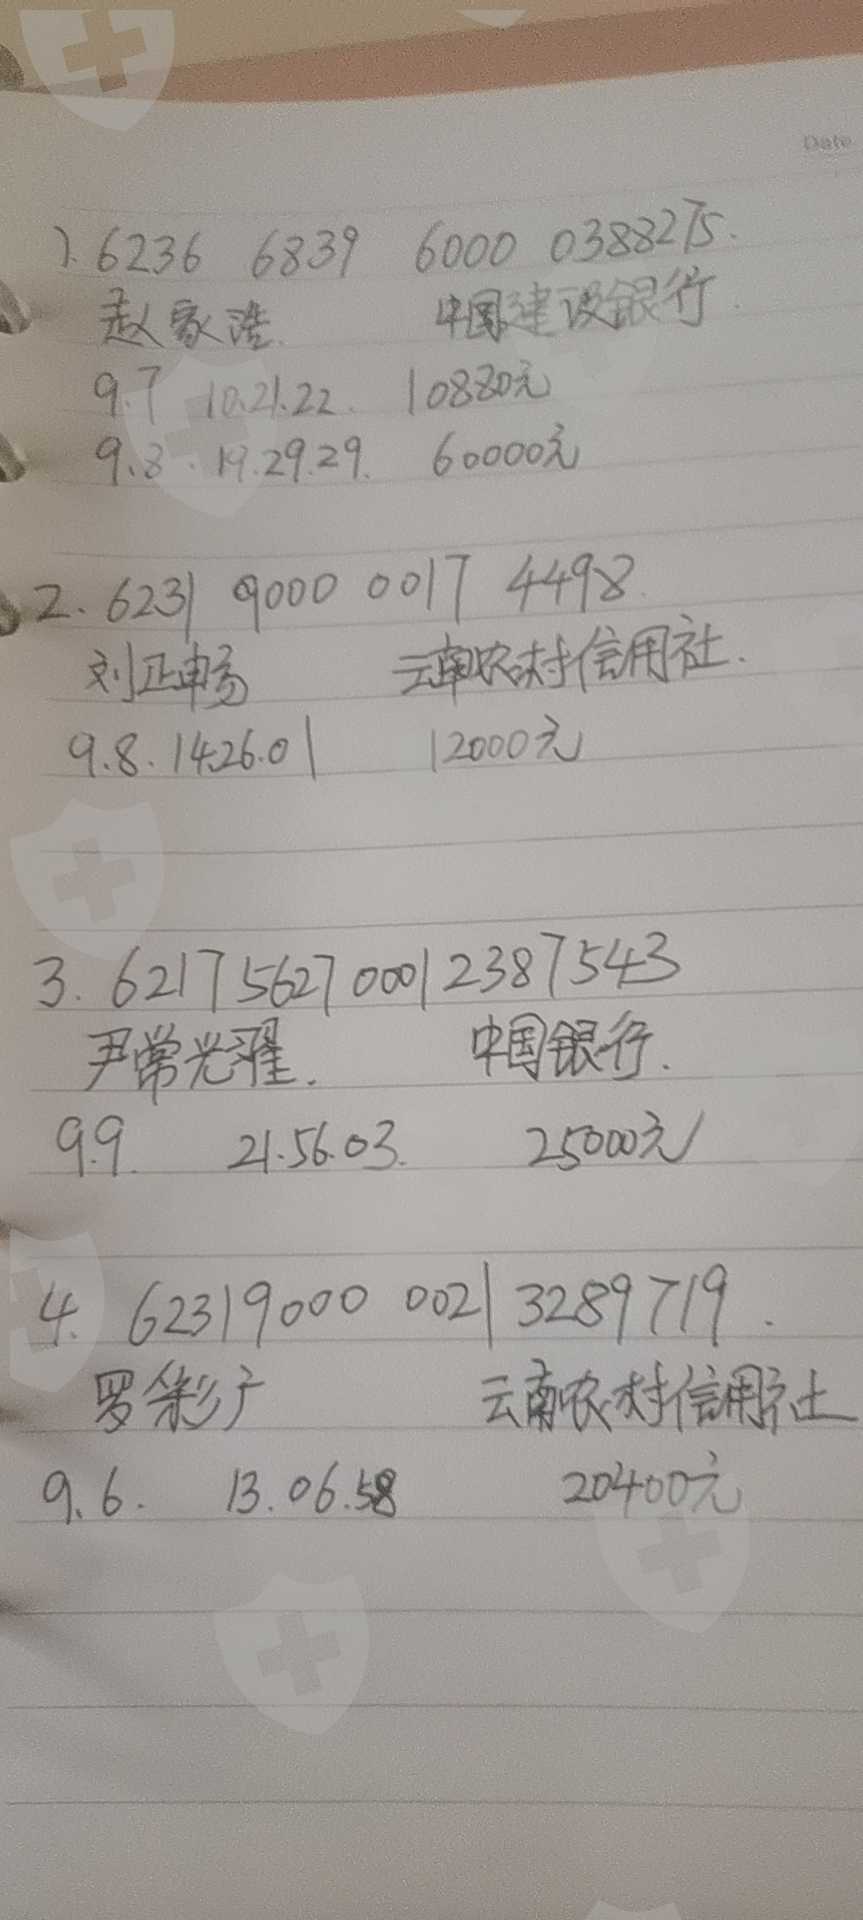 Date
1. 6236 6839 6000 0388275.
赵家浩 中国建设银行.
9.7 10.21.22. 10880元
9.8. 19.29.29. 60000元
2. 6231 9000 0017 4498.
刘正畅 云南农村信用社.
9.8. 14.26.01 12000元
3. 6217 5627 0001 2387543
尹常光耀. 中国银行.
9.9. 21.56.03. 25000元
4. 62319000 0021 3289719.
罗彩广 云南农村信用社
9.6. 13.06.58 20400元